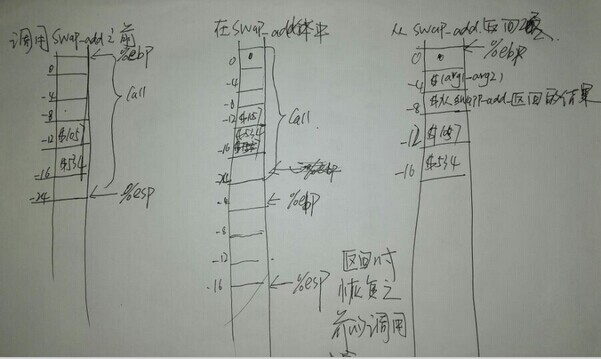 调用swap_add之前
%ebp
0
-4
-8
-12 $1057
-16 $534
-24
call
%esp
在swap_add体中
0
-4
-8
-12 $1057
$534
-16
-24
call
%ebp
-4
%ebp
-8
-12
-16
%esp
返回时
恢复之
前的调用
从swap_add返回之后
%ebp
0
-4 $(arg1-arg2)
-8 $从swap_add返回的结果
-12 $1057
-16 $534